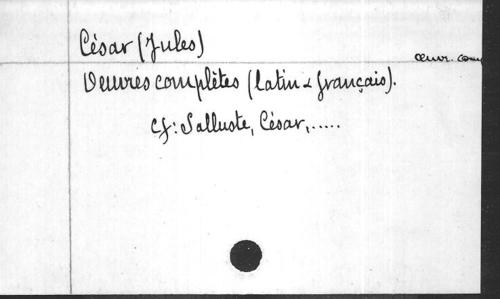 César (Jules)
œuvr. com
Oeuvres complètes (latin & français).
cf: Salluste, César, .....